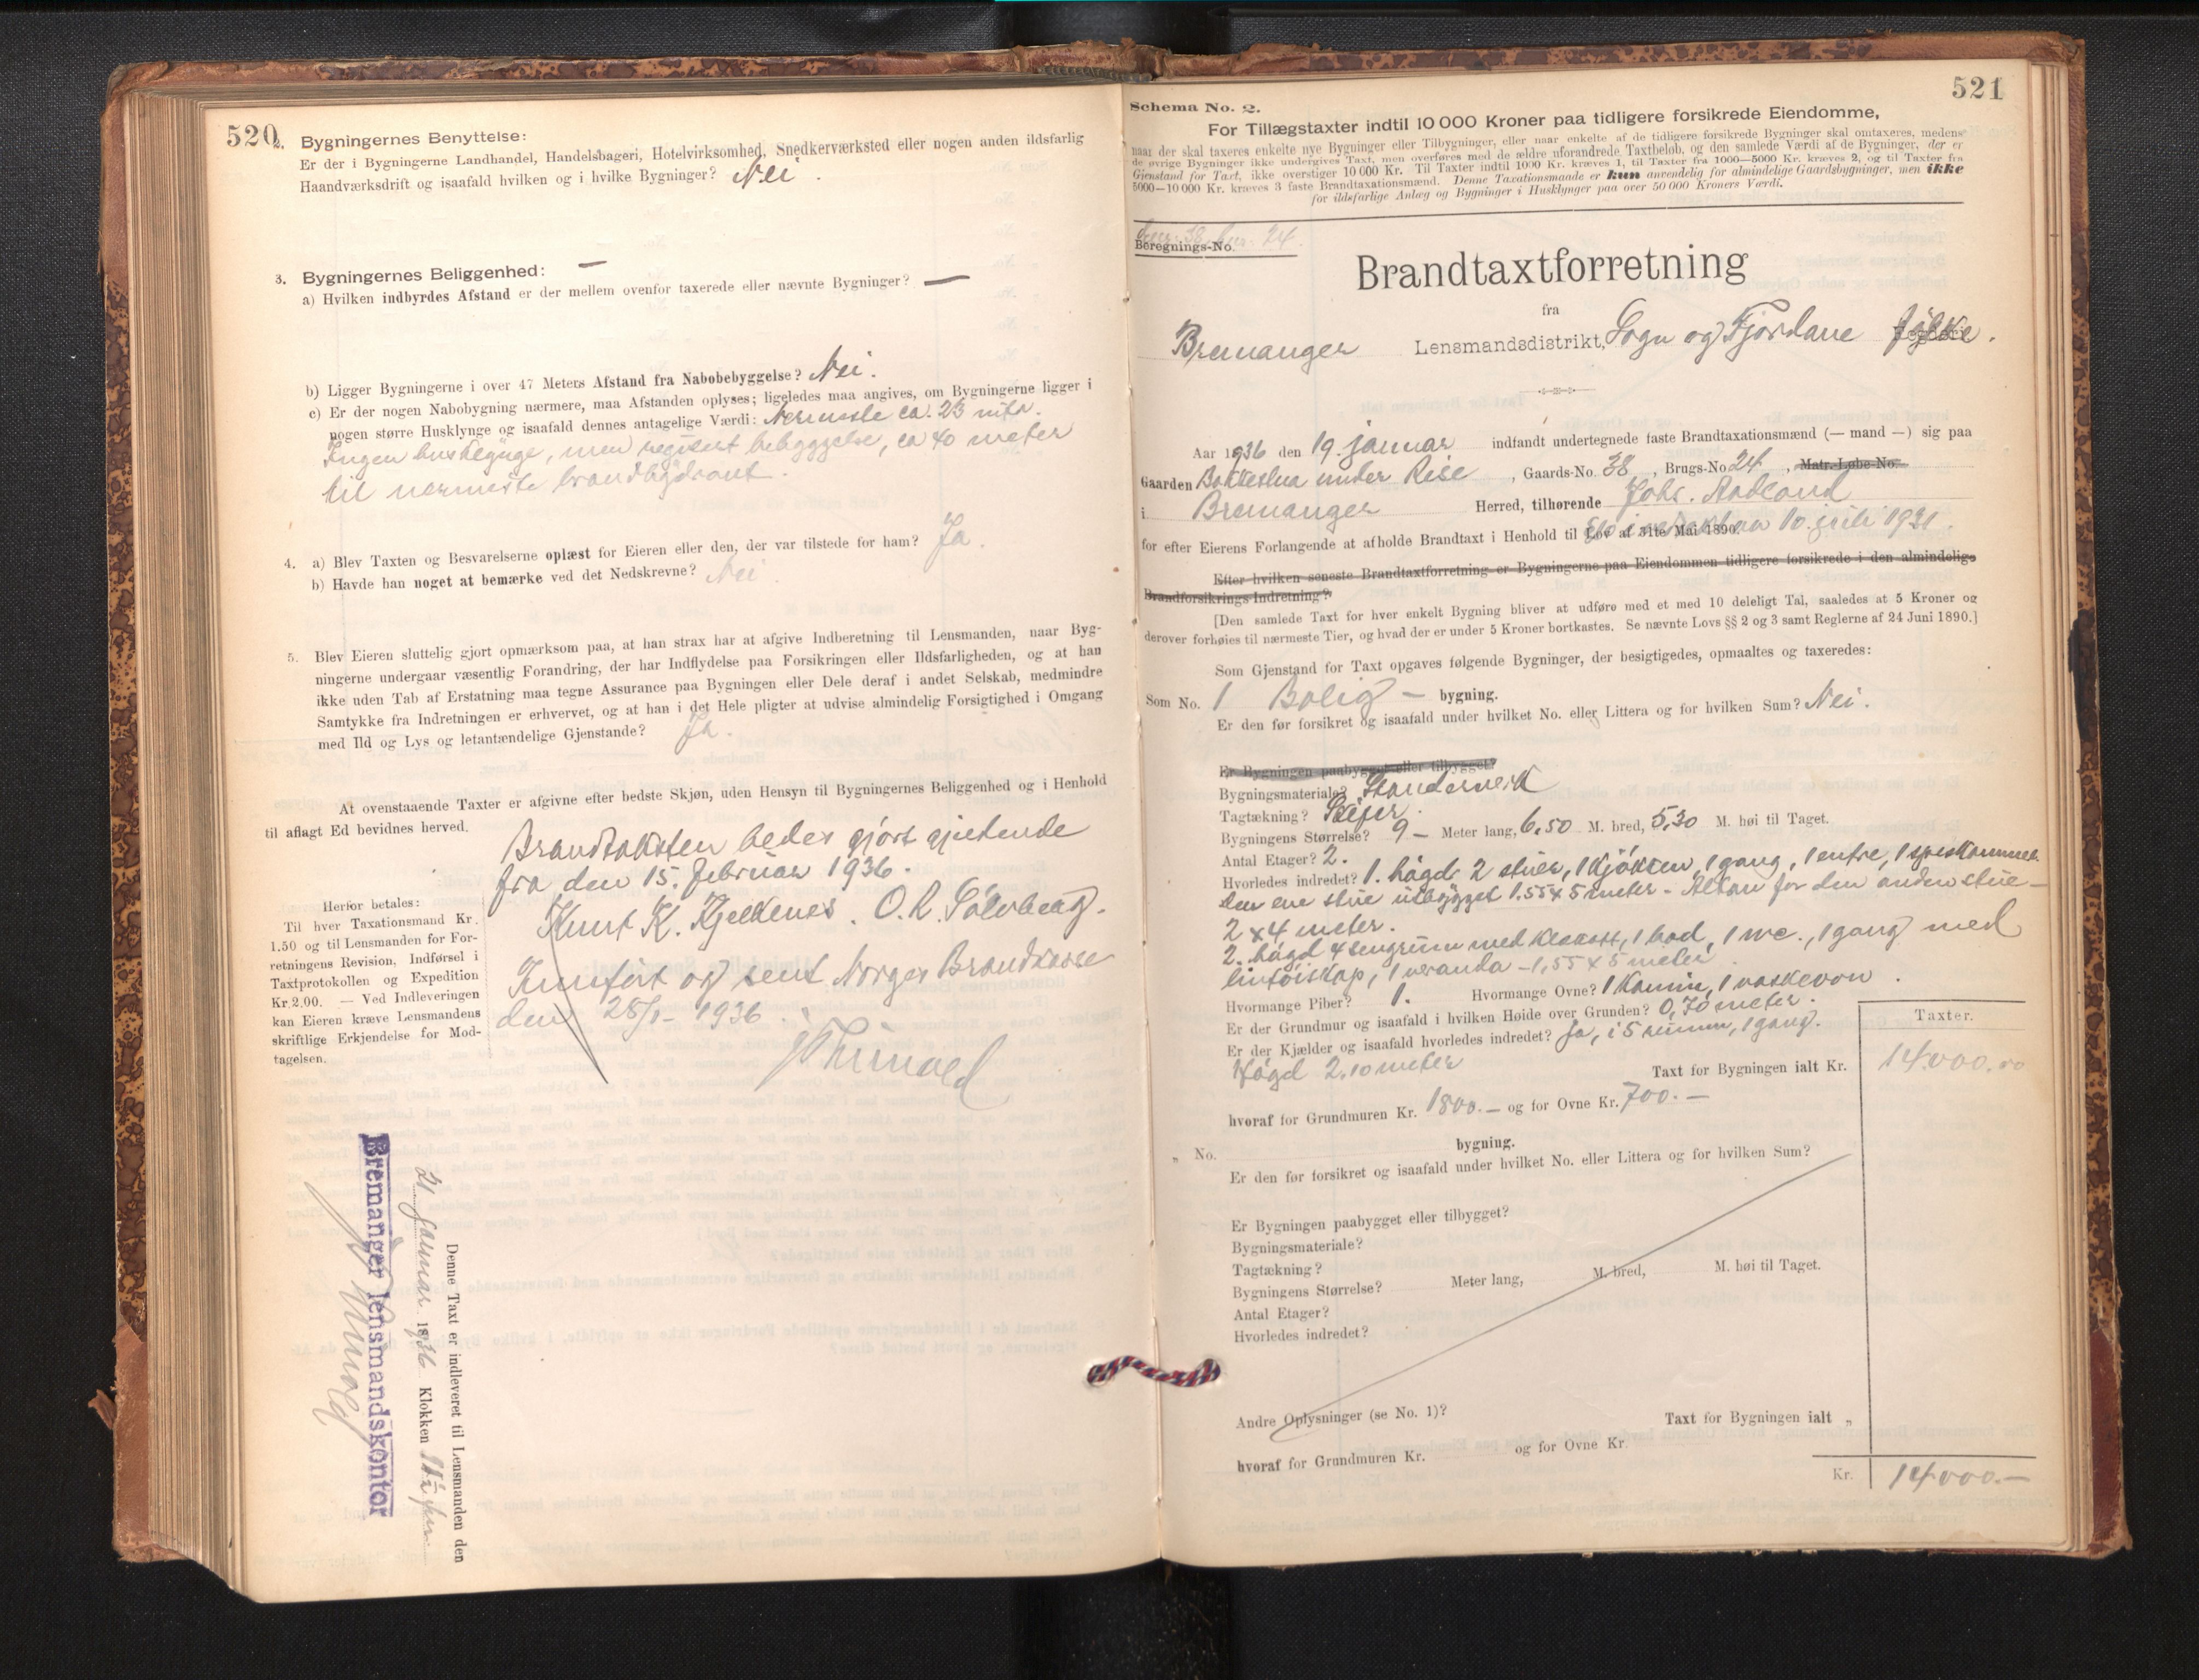 520
2. Bygningernes Benyttelse:
Er der i Bygningerne Landhandel, Handelsbageri, Hotelvirksomhed, Snedkerværksted eller nogen anden ildsfarlig
Haandværksdrift og isaafald hvilken og i hvilke Bygninger? Nei.
3. Bygningernes Beliggenhed: —
a) Hvilken indbyrdes Afstand er der mellem ovenfor taxerede eller nævnte Bygninger? —
b) Ligger Bygningerne i over 47 Meters Afstand fra Nabobebyggelse? Nei.
c) Er der nogen Nabobygning nærmere, maa Afstanden oplyses; ligeledes maa angives, om Bygningerne ligger i
nogen større Husklynge og isaafald dennes antagelige Værdi: Nermeste ca. 23 mtr.
Ingen husklynge, men regulert bebyggelse, ca 40 meter
til nermeste brandhydrant.
4. a) Blev Taxten og Besvarelserne oplæst for Eieren eller den, der var tilstede for ham? Ja.
b) Havde han noget at bemærke ved det Nedskrevne? Nei
5. Blev Eieren sluttelig gjort opmærksom paa, at han strax har at afgive Indberetning til Lensmanden, naar Byg-
ningerne undergaar væsentlig Forandring, der har Indflydelse paa Forsikringen eller Ildsfarligheden, og at han
ikke uden Tab af Erstatning maa tegne Assurance paa Bygningen eller Dele deraf i andet Selskab, medmindre
Samtykke fra Indretningen er erhvervet, og at han i det Hele pligter at udvise almindelig Forsigtighed i Omgang
med Ild og Lys og letantændelige Gjenstande? Ja.
At ovenstaaende Taxter er afgivne efter bedste Skjøn, uden Hensyn til Bygningernes Beliggenhed og i Henhold
til aflagt Ed bevidnes herved.
Brandtaksten bedes gjort gjeldende
fra den 15. februar 1936.
Knut K. Kjelkenes. O. R. Sølvberg.
Innført og sent Norges Brandkasse
den 25/1- 1936.
Herfor betales:
Til hver Taxationsmand Kr.
1.50 og til Lensmanden for For-
retningens Revision, Indførsel i
Taxtprotokollen og Expedition
Kr. 2.00. — Ved Indleveringen
kan Eieren kræve Lensmandens
skriftlige Erkjendelse for Mod-
tagelsen.
Denne Taxt er indleveret til Lensmanden den
21 januar 1936 Klokken 11½ fm.
Bremanger lensmandskontor
521
Schema No. 2.
For Tillægstaxter indtil 10 000 Kroner paa tidligere forsikrede Eiendomme,
naar der skal taxeres enkelte nye Bygninger eller Tilbygninger, eller naar enkelte af de tidligere forsikrede Bygninger skal omtaxeres, medens
de øvrige Bygninger ikke undergives Taxt, men overføres med de ældre uforandrede Taxtbeløb, og den samlede Værdi af de Bygninger, der er
Gjenstand for Taxt, ikke overstiger 10 000 Kr. Til Taxter indtil 1000 Kr. kræves 1, til Taxter fra 1000—5000 Kr. kræves 2, og til Taxter fra
5000—10 000 Kr. kræves 3 faste Brandtaxationsmænd. Denne Taxationsmaade er kun anvendelig for almindelige Gaardsbygninger, men ikke
for ildsfarlige Anlæg og Bygninger i Husklynger paa over 50 000 Kroners Værdi.
Gnr. 38, bnr. 24.
Beregnings-No.
Brandtaxtforretning
fra
Bremanger Lensmandsdistrikt, Sogn og Fjordane fylke.
Aar 1936 den 19. januar indfandt undertegnede faste Brandtaxationsmænd (— mand —) sig paa
Gaarden Bakkeslua under Rise, Gaards-No. 38, Brugs-No 24, Matr.-Løbe-No.
i Bremanger Herred, tilhørende Johs. Aadland
for efter Eierens Forlangende at afholde Brandtaxt i Henhold til Lov af 31te Mai 1890. 10. juli 1931.
Efter hvilken seneste Brandtaxtforretning er Bygningerne paa Eiendommen tidligere forsikrede i den almindelige
Brandforsikrings-Indretning?
[Den samlede Taxt for hver enkelt Bygning bliver at udføre med et med 10 deleligt Tal, saaledes at 5 Kroner og
derover forhøies til nærmeste Tier, og hvad der er under 5 Kroner bortkastes. Se nævnte Lovs §§ 2 og 3 samt Reglerne af 24 Juni 1890.]
Som Gjenstand for Taxt opgaves følgende Bygninger, der besigtigedes, opmaaltes og taxeredes:
Som No. 1 Bolig — bygning.
Er den før forsikret og isaafald under hvilket No. eller Littera og for hvilken Sum? Nei.
Er Bygningen paabygget eller tilbygget?
Bygningsmateriale? Standerverk
Tagtækning? Skifer.
Bygningens Størrelse? 9 — Meter lang, 6,50 M. bred, 5,30 M. høi til Taget.
Antal Etager? 2.
Hvorledes indredet? 1. høgd 2 stuer, 1 kjøkken, 1 gang, 1 entre, 1 spiskammer
den ene stue utbygget 1.55 x 5 meter - Altan for den anden stue —
2 x 4 meter.
2. høgd 4 sengrum med klækott, 1 bad, 1 wc., 1 gang med
lintøiskap, 1 veranda — 1,55 x 5 meter
Hvormange Piber? 1. Hvormange Ovne? 1 Kamin, 1 vaskeovn.
Er der Grundmur og isaafald i hvilken Høide over Grunden? 0,70 meter.
Er der Kjælder og isaafald hvorledes indredet? Ja, i 5 rumm, 1 gang.
Høgd 2.10 meter
Taxter.
Taxt for Bygningen ialt Kr. 14.000.00
hvoraf for Grundmuren Kr. 1800.— og for Ovne Kr. 700.—
„ No. bygning.
Er den før forsikret og isaafald under hvilket No. eller Littera og for hvilken Sum?
Er Bygningen paabygget eller tilbygget?
Bygningsmateriale?
Tagtækning?
Bygningens Størrelse? Meter lang, M. bred, M. høi til Taget.
Antal Etager?
Hvorledes indredet?
Andre Oplysninger (se No. 1)? Taxt for Bygningen ialt „
hvoraf for Grundmuren Kr. og for Ovne Kr.
Kr. 14000.—